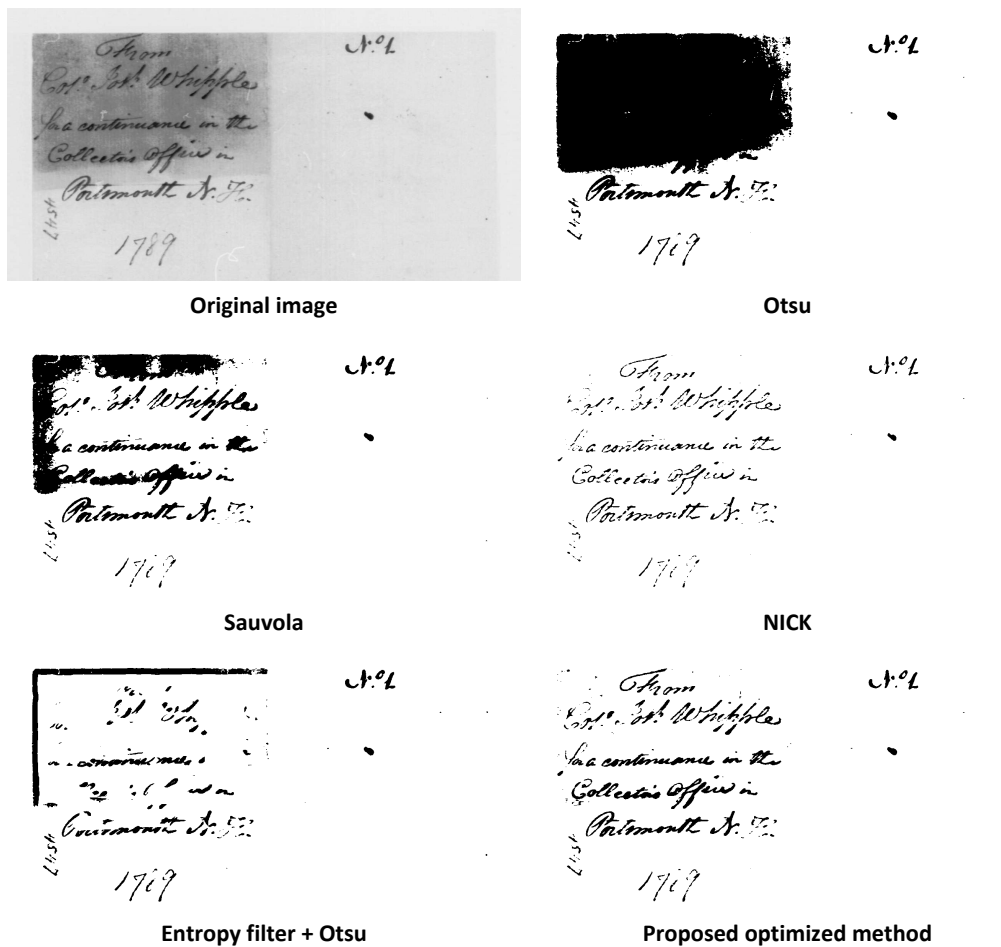 From
N.º 1
Colº. Josh. Whipple
for a continuance in the
Collector's Office in
Portsmouth N. H.
1789
Original image
N.º 1
Portsmouth N. H.
1789
Otsu
N.º 1
Colº. Josh. Whipple
for a continuance in the
Collector's Office in
Portsmouth N. H.
1789
Sauvola
From
N.º 1
Colº. Josh. Whipple
for a continuance in the
Collector's Office in
Portsmouth N. H.
1789
NICK
N.º 1
Portsmouth N. H.
1789
Entropy filter + Otsu
From
N.º 1
Colº. Josh. Whipple
for a continuance in the
Collector's Office in
Portsmouth N. H.
1789
Proposed optimized method